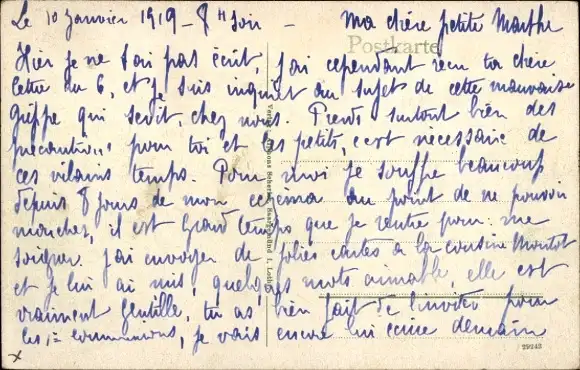 Le 10 Janvier 1919 - 8 H Soir - Ma chère petite Marthe
Postkarte
Hier je ne t'ai pas écrit, j'ai cependant reçu ta chère
lettre du 6, et je suis inquiet au sujet de cette mauvaise
grippe qui sévit chez nous. Prends surtout bien des
précautions pour toi et les petits, c'est nécessaire de
ces vilains temps. Pour moi je souffre beaucoup
depuis 8 jours de mon eczéma au point de ne pouvoir
moucher, il est Grand temps que je rentre pour me
soigner. J'ai envoyer de jolies cartes à la cousine
et je lui ai mis, quelques mots aimable, elle est
vraiment gentille, tu as bien fait de l'inviter pour
les communions, je vais encore lui écrire demain
29242